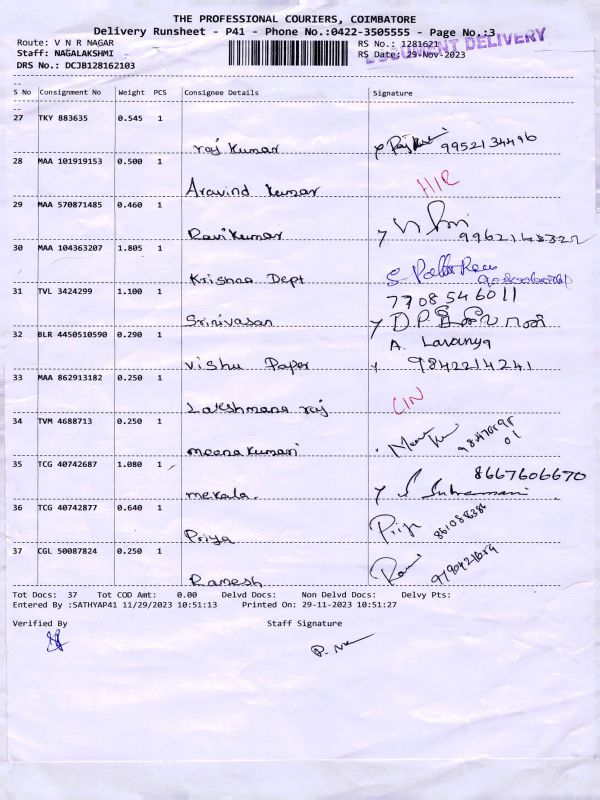 THE PROFESSIONAL COURIERS, COIMBATORE
Delivery Runsheet - P41 - Phone No.:0422-3505555 - Page No.:3
Route: V N R NAGAR
RS No.: 1281621
DOCUMENT DELIVERY
Staff: NAGALAKSHMI
RS Date: 29-Nov-2023
DRS No.: DCJB128162103
S No Consignment No Weight PCS Consignee Details Signature
27 TKY 883635 0.545 1
raj kumar 9952134496
28 MAA 101919153 0.500 1
Aravind kumar
29 MAA 570871485 0.460 1
Ravikumar
30 MAA 104363207 1.805 1
Krishna Dept
7708546011
31 TVL 3424299 1.100 1
Srinivasan D.P.
32 BLR 4450510590 0.290 1
A. Lavanya
Vishu Paper 9842214241
33 MAA 862913182 0.250 1
Lakshmana raj
34 TVM 4688713 0.250 1
meena kumari
35 TCG 40742687 1.080 1
8667606670
mekala.
36 TCG 40742877 0.640 1
Priya
37 CGL 50087824 0.250 1
Ramesh
Tot Docs: 37 Tot COD Amt: 0.00 Delvd Docs: Non Delvd Docs: Delvy Pts:
Entered By :SATHYAP41 11/29/2023 10:51:13 Printed On: 29-11-2023 10:51:27
Verified By
Staff Signature